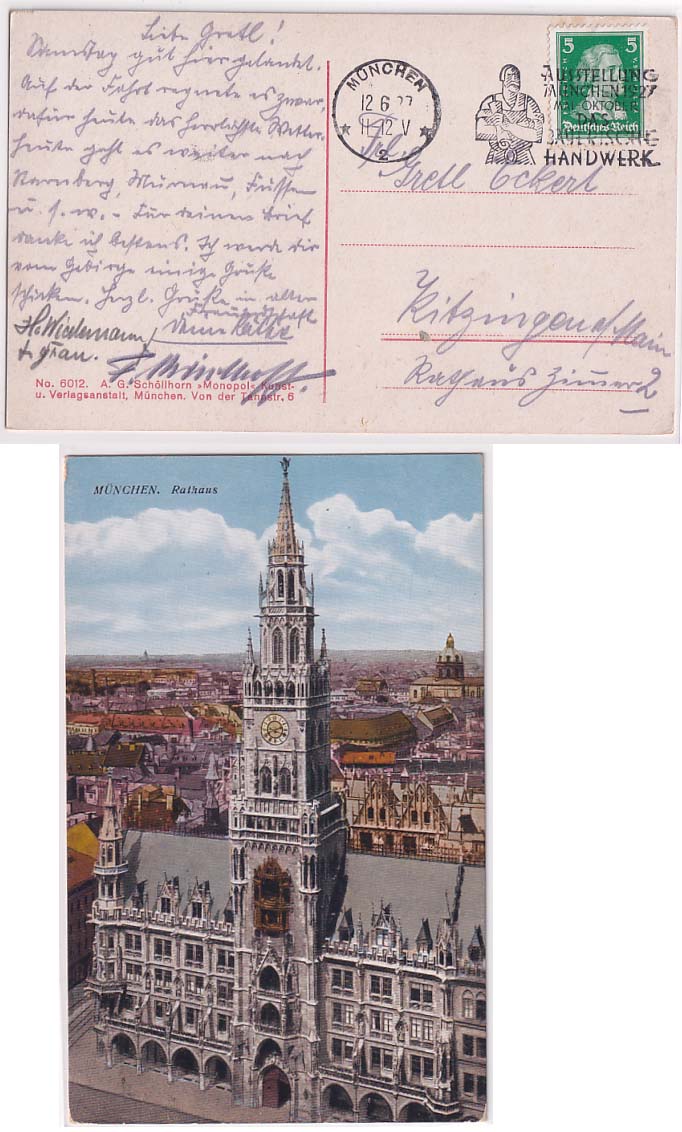 Liebe Gretl!
Samstag gut hier gelandet.
Auf der Fahrt regnete es zwar,
dafür heute das herrlichste Wetter.
Heute geht es weiter nach
Nürnberg, Murnau, Füssen
u. s. w. - Für deinen Brief
danke ich bestens. Ich werde dir
vom Gebirge einige Grüße
schicken. Herzl. Grüße in alter
Freundschaft
deine Käthe
H. Wiedemann
+ Frau.
No. 6012. A. G. Schöllhorn »Monopol« Kunst-
u. Verlagsanstalt, München. Von der Tannstr. 6
MÜNCHEN
12 6 27
11-12 V
2
AUSSTELLUNG
MÜNCHEN 1927
MAI-OKTOBER
DAS
BAYERISCHE
HANDWERK
5 5
Deutsches Reich
Frl.
Gretl Eckert
Kitzingen a/Main
Rathaus Zimmer 2
MÜNCHEN. Rathaus